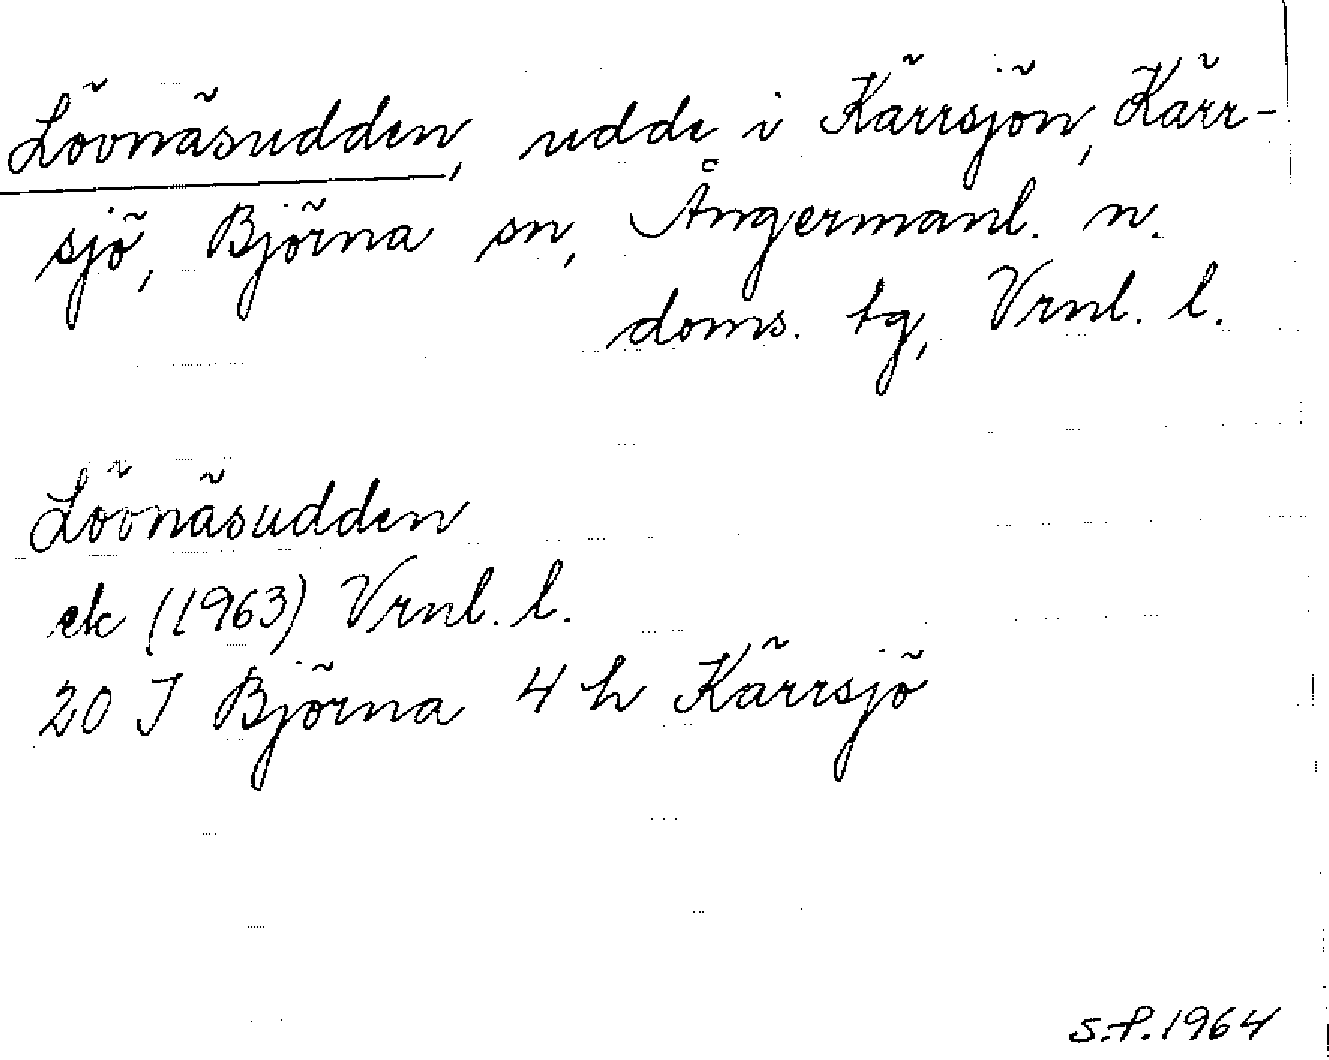 Lövnäsudden, udde i Kärrsjön, Kärr-
sjö, Björna sn, Ångermanl. n.
doms. tg, Vrnl. l.
Lövnäsudden
ek (1963) Vrnl. l.
20 J Björna 4 h Kärrsjö
S.P. 1964